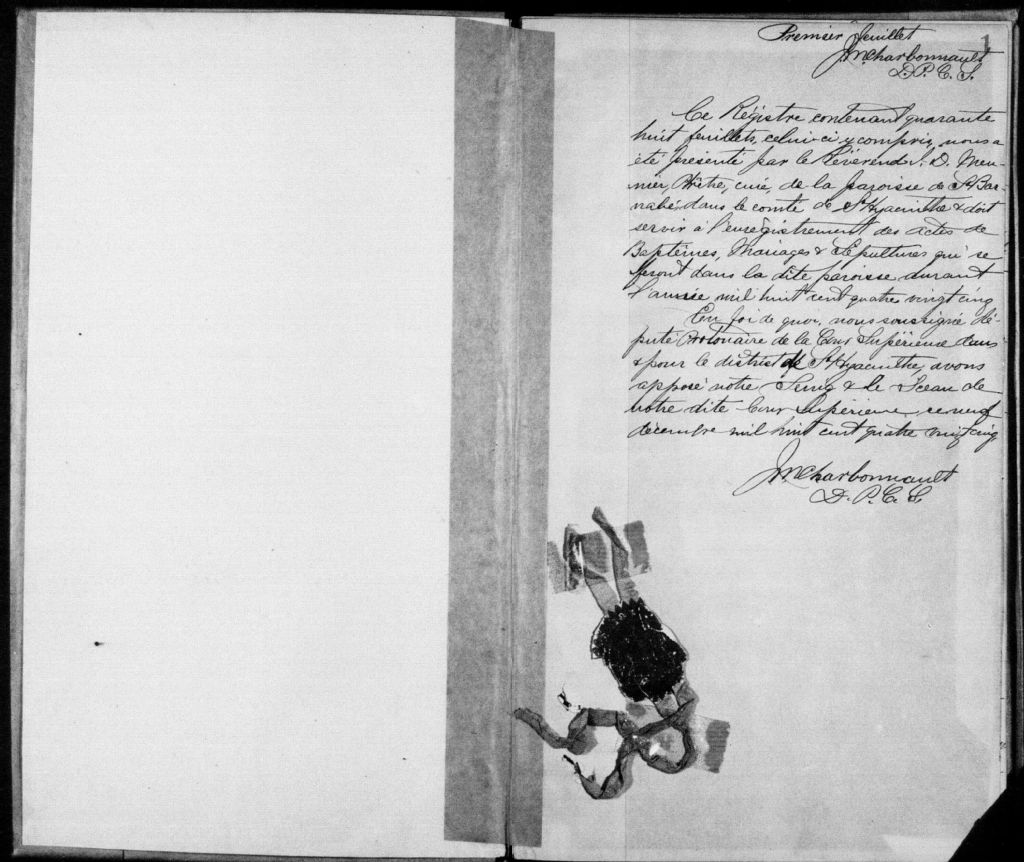 1
Premier feuillet
J.N. Charbonnault
D.P.C.S.
Ce Régistre contenant quarante
huit feuillets, celui-ci y compris, nous a
été présenté par le Révérend J. D. Meu-
nier, Prêtre, curé, de la paroisse de St Bar-
nabé dans le comté de St Hyacinthe & doit
servir à l'enregistrement des actes de
Baptêmes, Mariages & Sépultures qui se
feront dans la dite paroisse durant
l'année mil huit cent quatre vingt cinq
En foi de quoi, nous soussigné dé-
puté Protonaire de la Cour Supérieure dans
& pour le district de St Hyacinthe, avons
apposé notre Seing & le Sceau de
notre dite Cour Supérieure, ce neuf
décembre mil huit cent quatre vingt cinq
J.N. Charbonnault
D.P.C.S.